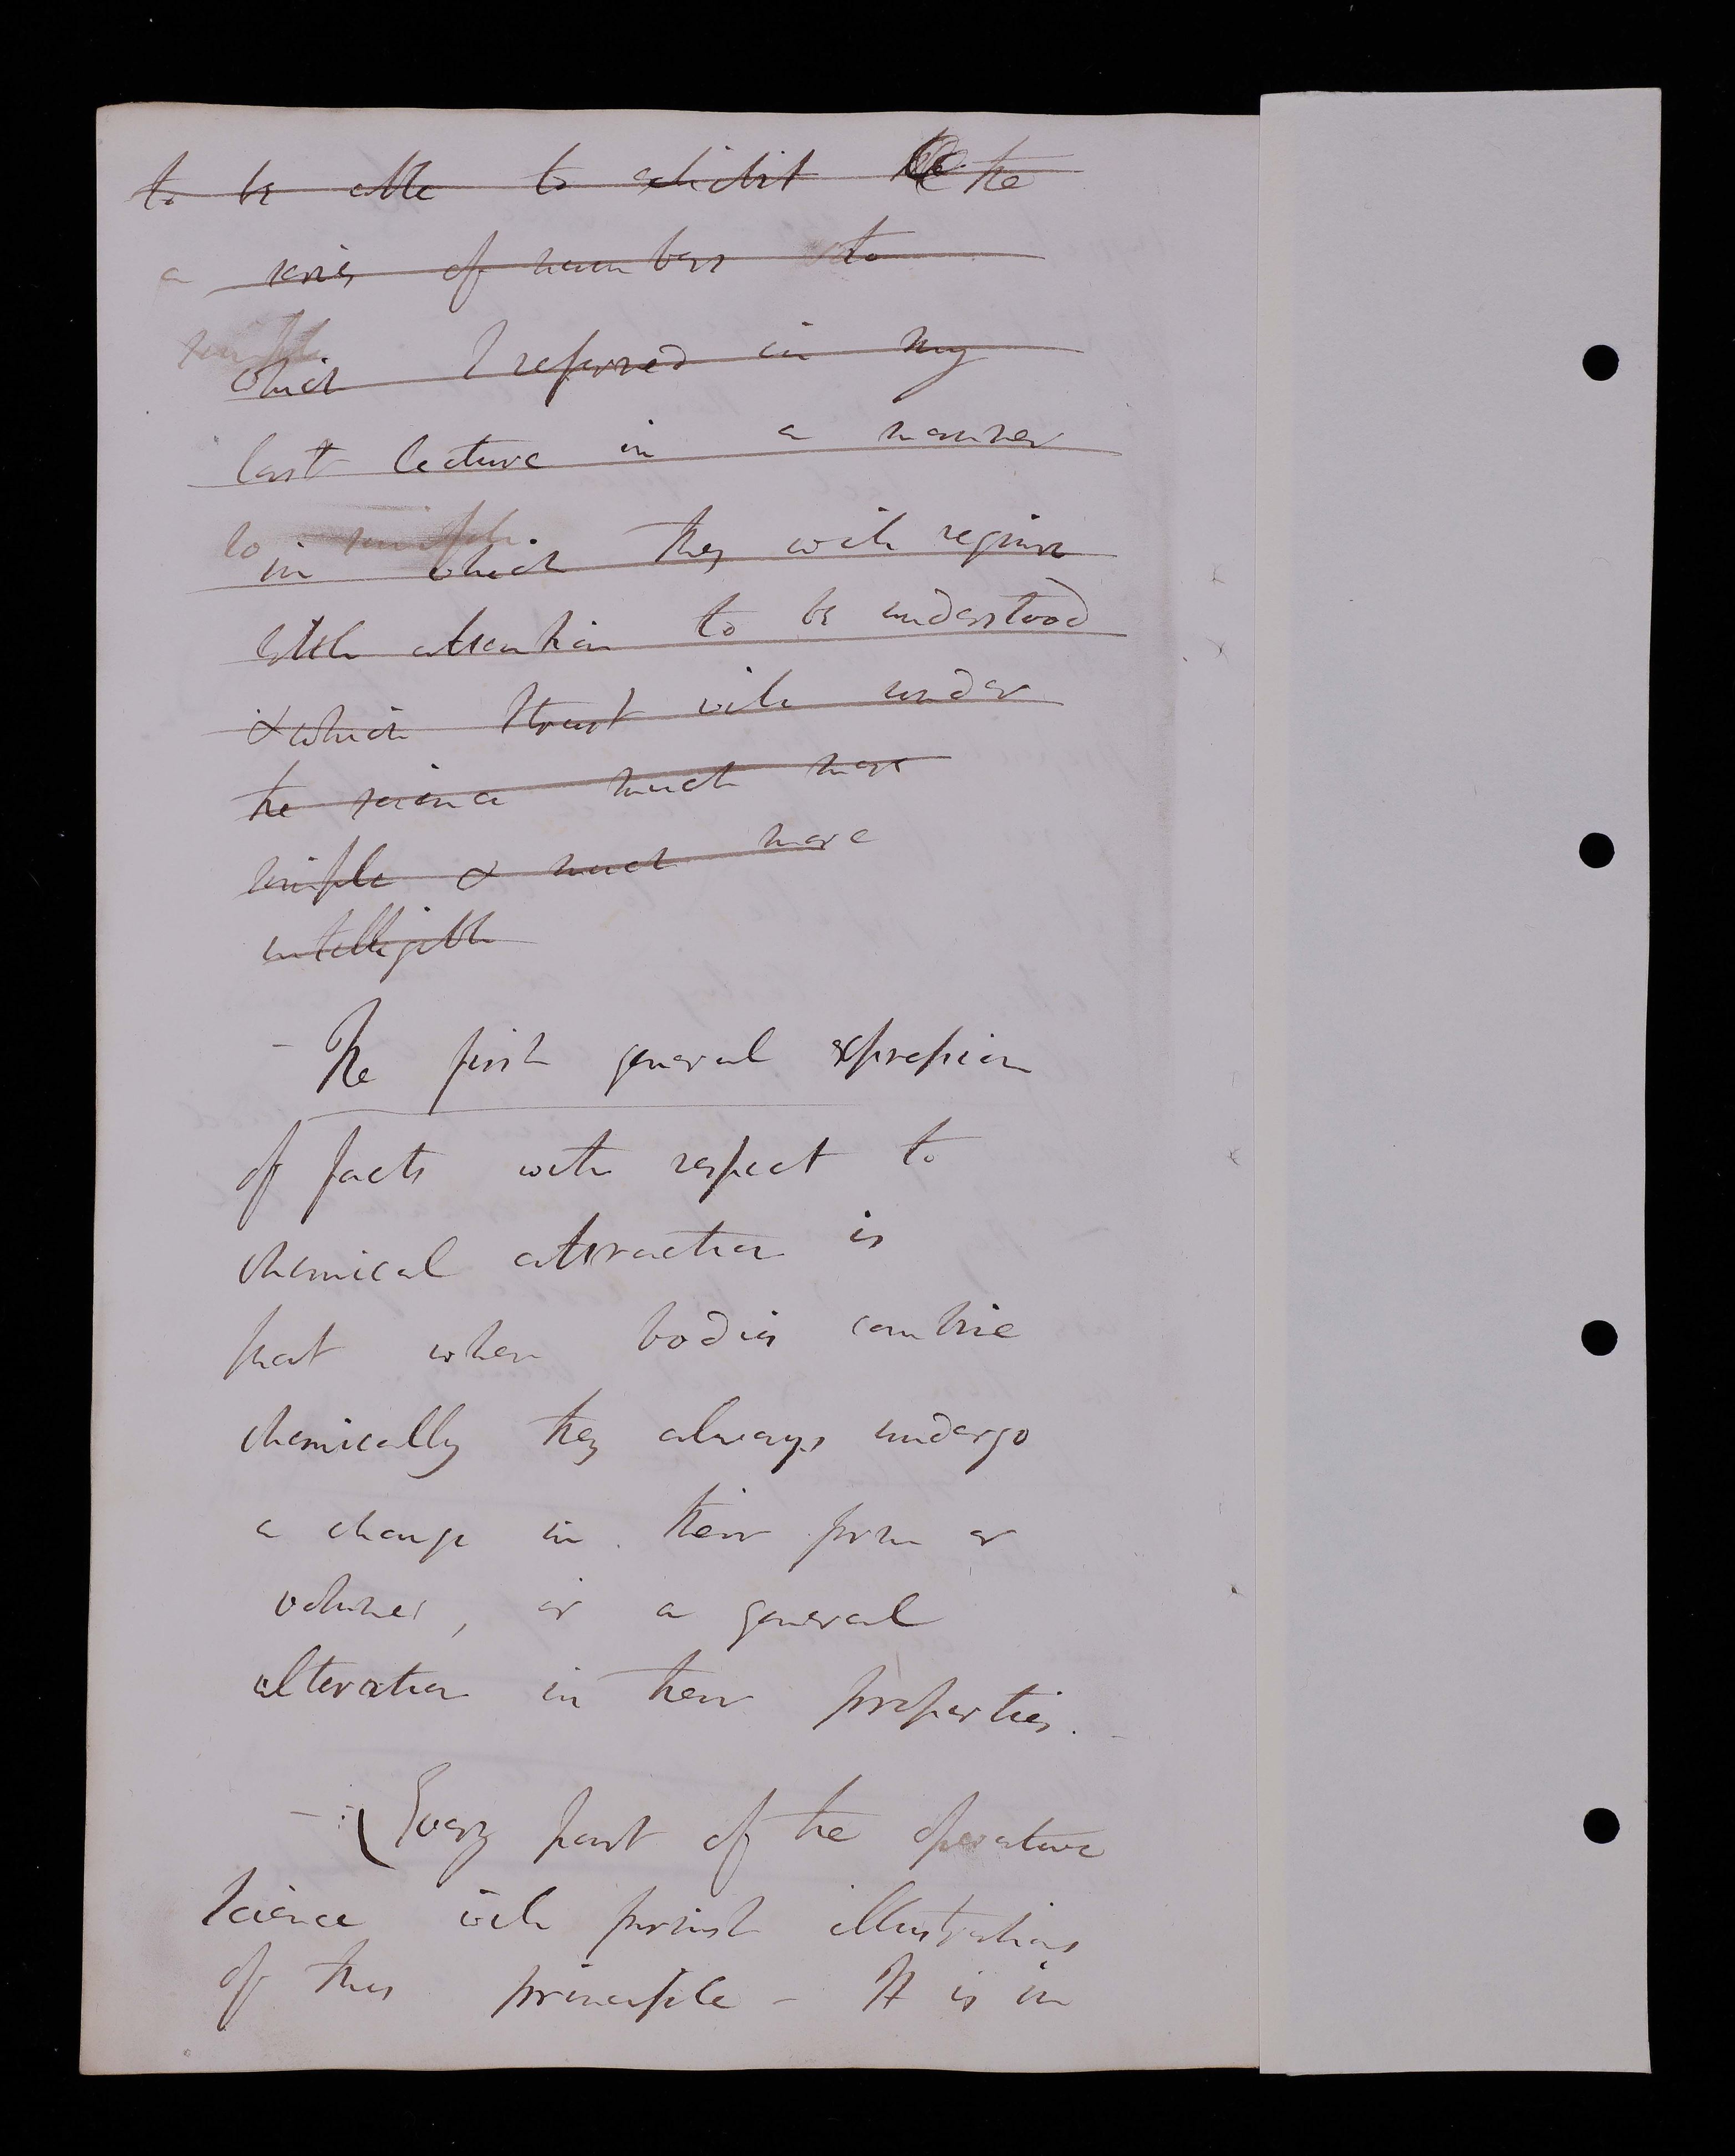 to be able to exhibit the
a series of numbers to
simple
which I referred in my
last lecture in a manner
so simple
in which they will require
little attention to be understood
& which I trust will render
the science much more
simple & much more
intelligible
- The first general expression
of facts with respect to
chemical attraction is
that when bodies combine
chemically they always undergo
a change in their form or
volumes, or a general
alteration in their properties.
- : (Every part of the operative
science will furnish illustrations
of this principle - It is in